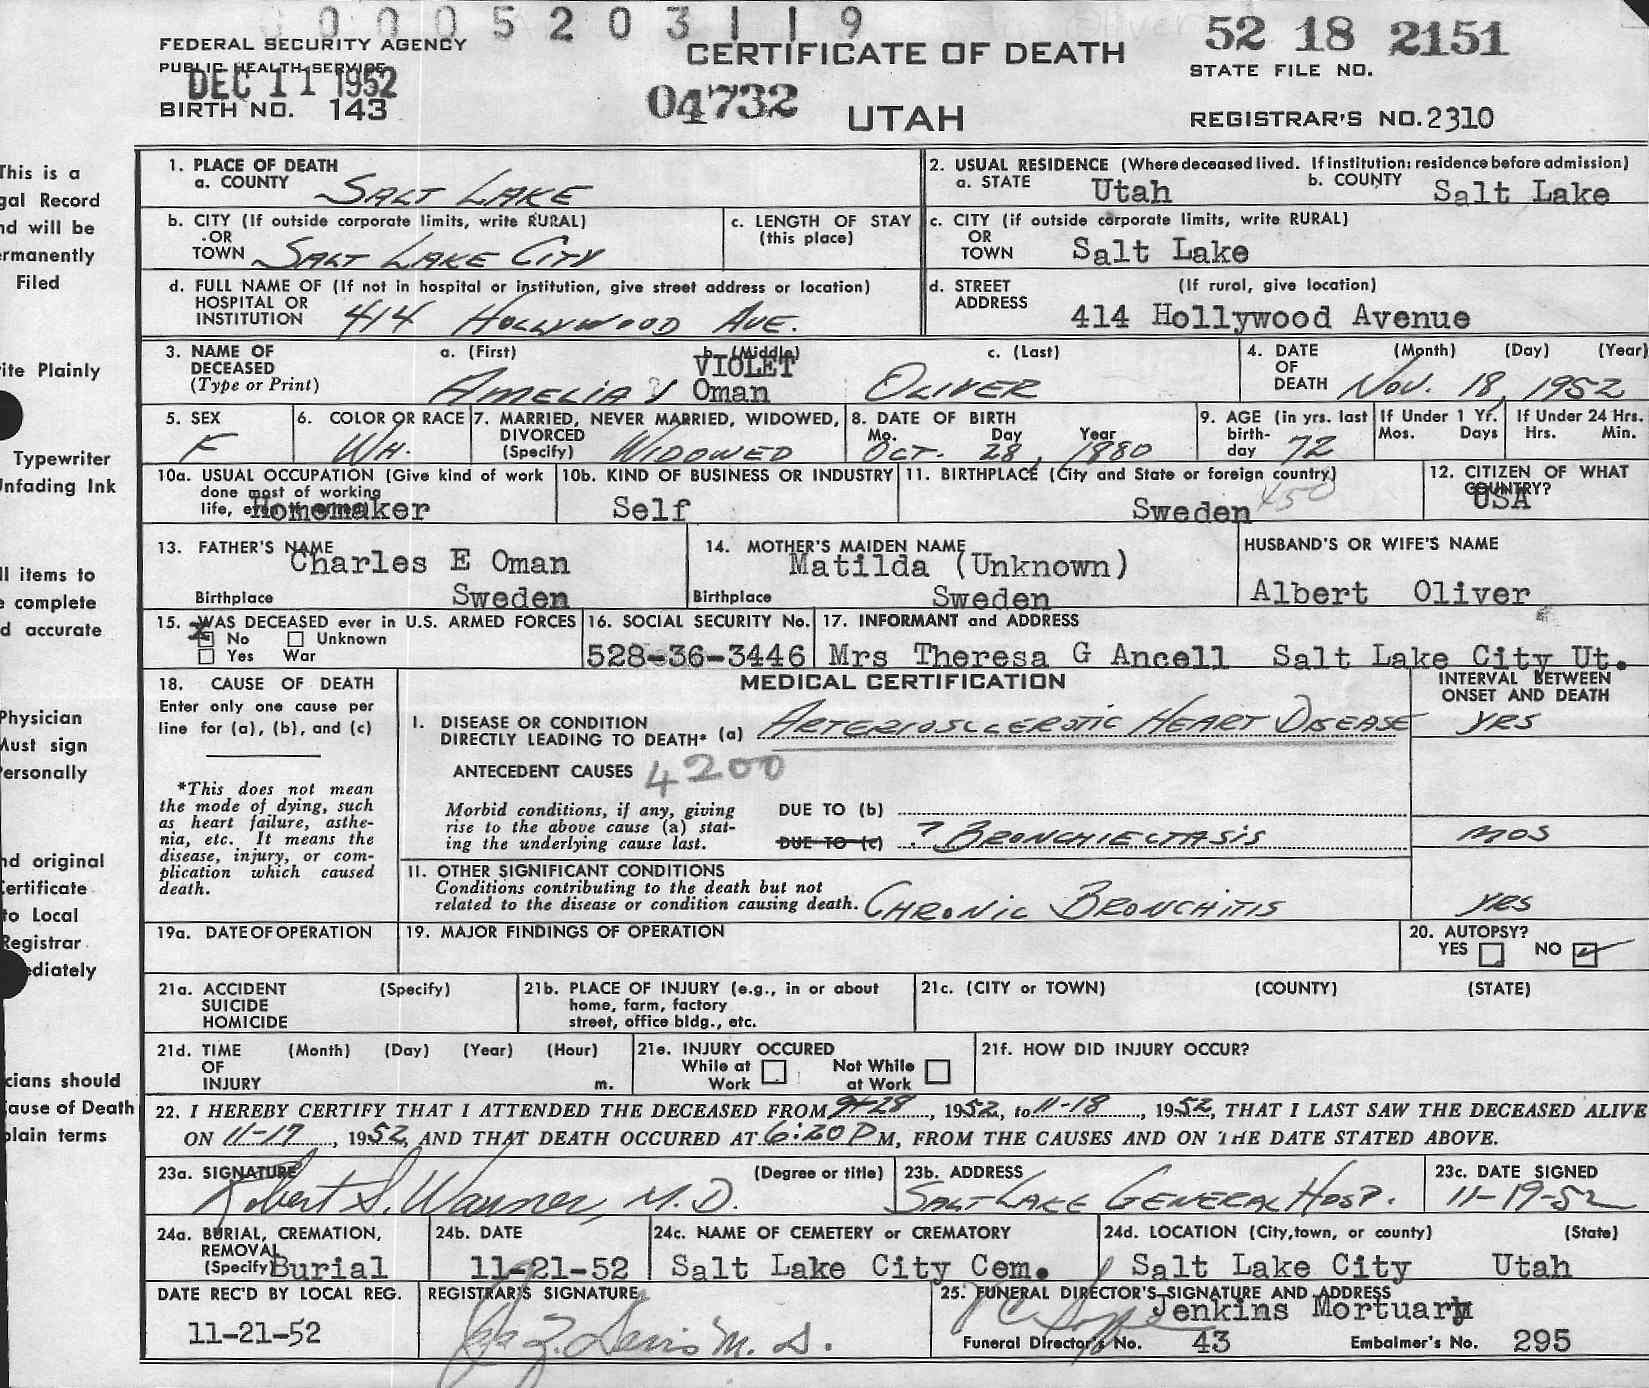 0005203119
FEDERAL SECURITY AGENCY
PUBLIC HEALTH SERVICE
DEC 11 1952
BIRTH NO. 143
CERTIFICATE OF DEATH
04732 UTAH
52 18 2151
STATE FILE NO.
REGISTRAR'S NO. 2310
This is a
gal Record
nd will be
rmanently
Filed
ite Plainly
Typewriter
Unfading Ink
ll items to
e complete
d accurate
Physician
Must sign
Personally
nd original
Certificate
to Local
Registrar
ediately
cians should
ause of Death
plain terms
1. PLACE OF DEATH
a. COUNTY SALT LAKE
2. USUAL RESIDENCE (Where deceased lived. If institution: residence before admission)
a. STATE Utah b. COUNTY Salt Lake
b. CITY (If outside corporate limits, write RURAL)
OR
TOWN SALT LAKE CITY
c. LENGTH OF STAY
(this place)
c. CITY (if outside corporate limits, write RURAL)
OR
TOWN Salt Lake
d. FULL NAME OF (If not in hospital or institution, give street address or location)
HOSPITAL OR
INSTITUTION 414 HOLLYWOOD AVE.
d. STREET (If rural, give location)
ADDRESS 414 Hollywood Avenue
3. NAME OF DECEASED
(Type or Print)
a. (First) b. (Middle) c. (Last)
VIOLET
AMELIA Oman OLIVER
4. DATE OF DEATH (Month) (Day) (Year)
NOV. 18, 1952
5. SEX
F
6. COLOR OR RACE
WH.
7. MARRIED, NEVER MARRIED, WIDOWED,
DIVORCED
(Specify) WIDOWED
8. DATE OF BIRTH
Mo. Day Year
OCT. 28, 1880
9. AGE (in yrs. last
birth-
day 72
If Under 1 Yr.
Mos. Days
If Under 24 Hrs.
Hrs. Min.
10a. USUAL OCCUPATION (Give kind of work
done most of working
life, even if retired)
Homemaker
10b. KIND OF BUSINESS OR INDUSTRY
Self
11. BIRTHPLACE (City and State or foreign country)
Sweden 450
12. CITIZEN OF WHAT
COUNTRY?
USA
13. FATHER'S NAME
Charles E Oman
Birthplace Sweden
14. MOTHER'S MAIDEN NAME
Matilda (Unknown)
Birthplace Sweden
HUSBAND'S OR WIFE'S NAME
Albert Oliver
15. WAS DECEASED ever in U.S. ARMED FORCES
No Unknown
Yes War
16. SOCIAL SECURITY No.
528-36-3446
17. INFORMANT and ADDRESS
Mrs Theresa G Ancell Salt Lake City Ut.
18. CAUSE OF DEATH
Enter only one cause per
line for (a), (b), and (c)
*This does not mean
the mode of dying, such
as heart failure, asthe-
nia, etc. It means the
disease, injury, or com-
plication which caused
death.
MEDICAL CERTIFICATION
INTERVAL BETWEEN
ONSET AND DEATH
I. DISEASE OR CONDITION
DIRECTLY LEADING TO DEATH* (a) ARTERIOSCLEROTIC HEART DISEASE YRS
ANTECEDENT CAUSES 4200
Morbid conditions, if any, giving
rise to the above cause (a) stat-
ing the underlying cause last.
DUE TO (b)
DUE TO (c) ? BRONCHIECTASIS MOS
II. OTHER SIGNIFICANT CONDITIONS
Conditions contributing to the death but not
related to the disease or condition causing death. CHRONIC BRONCHITIS YRS
19a. DATE OF OPERATION
19. MAJOR FINDINGS OF OPERATION
20. AUTOPSY?
YES NO
21a. ACCIDENT (Specify)
SUICIDE
HOMICIDE
21b. PLACE OF INJURY (e.g., in or about
home, farm, factory
street, office bldg., etc.
21c. (CITY or TOWN) (COUNTY) (STATE)
21d. TIME (Month) (Day) (Year) (Hour)
OF
INJURY m.
21e. INJURY OCCURED
While at Work Not While at Work
21f. HOW DID INJURY OCCUR?
22. I HEREBY CERTIFY THAT I ATTENDED THE DECEASED FROM 9-28, 1952, to 11-18, 1952, THAT I LAST SAW THE DECEASED ALIVE
ON 11-17, 1952, AND THAT DEATH OCCURED AT 6:20 P M, FROM THE CAUSES AND ON THE DATE STATED ABOVE.
23a. SIGNATURE (Degree or title)
Robert S. Wanner, M.D.
23b. ADDRESS
SALT LAKE GENERAL HOSP.
23c. DATE SIGNED
11-19-52
24a. BURIAL, CREMATION,
REMOVAL
(Specify) Burial
24b. DATE
11-21-52
24c. NAME OF CEMETERY or CREMATORY
Salt Lake City Cem.
24d. LOCATION (City, town, or county) (State)
Salt Lake City Utah
DATE REC'D BY LOCAL REG.
11-21-52
REGISTRAR'S SIGNATURE
Davis M. D.
25. FUNERAL DIRECTOR'S SIGNATURE AND ADDRESS
Jenkins Mortuary
Funeral Director's No. 43 Embalmer's No. 295